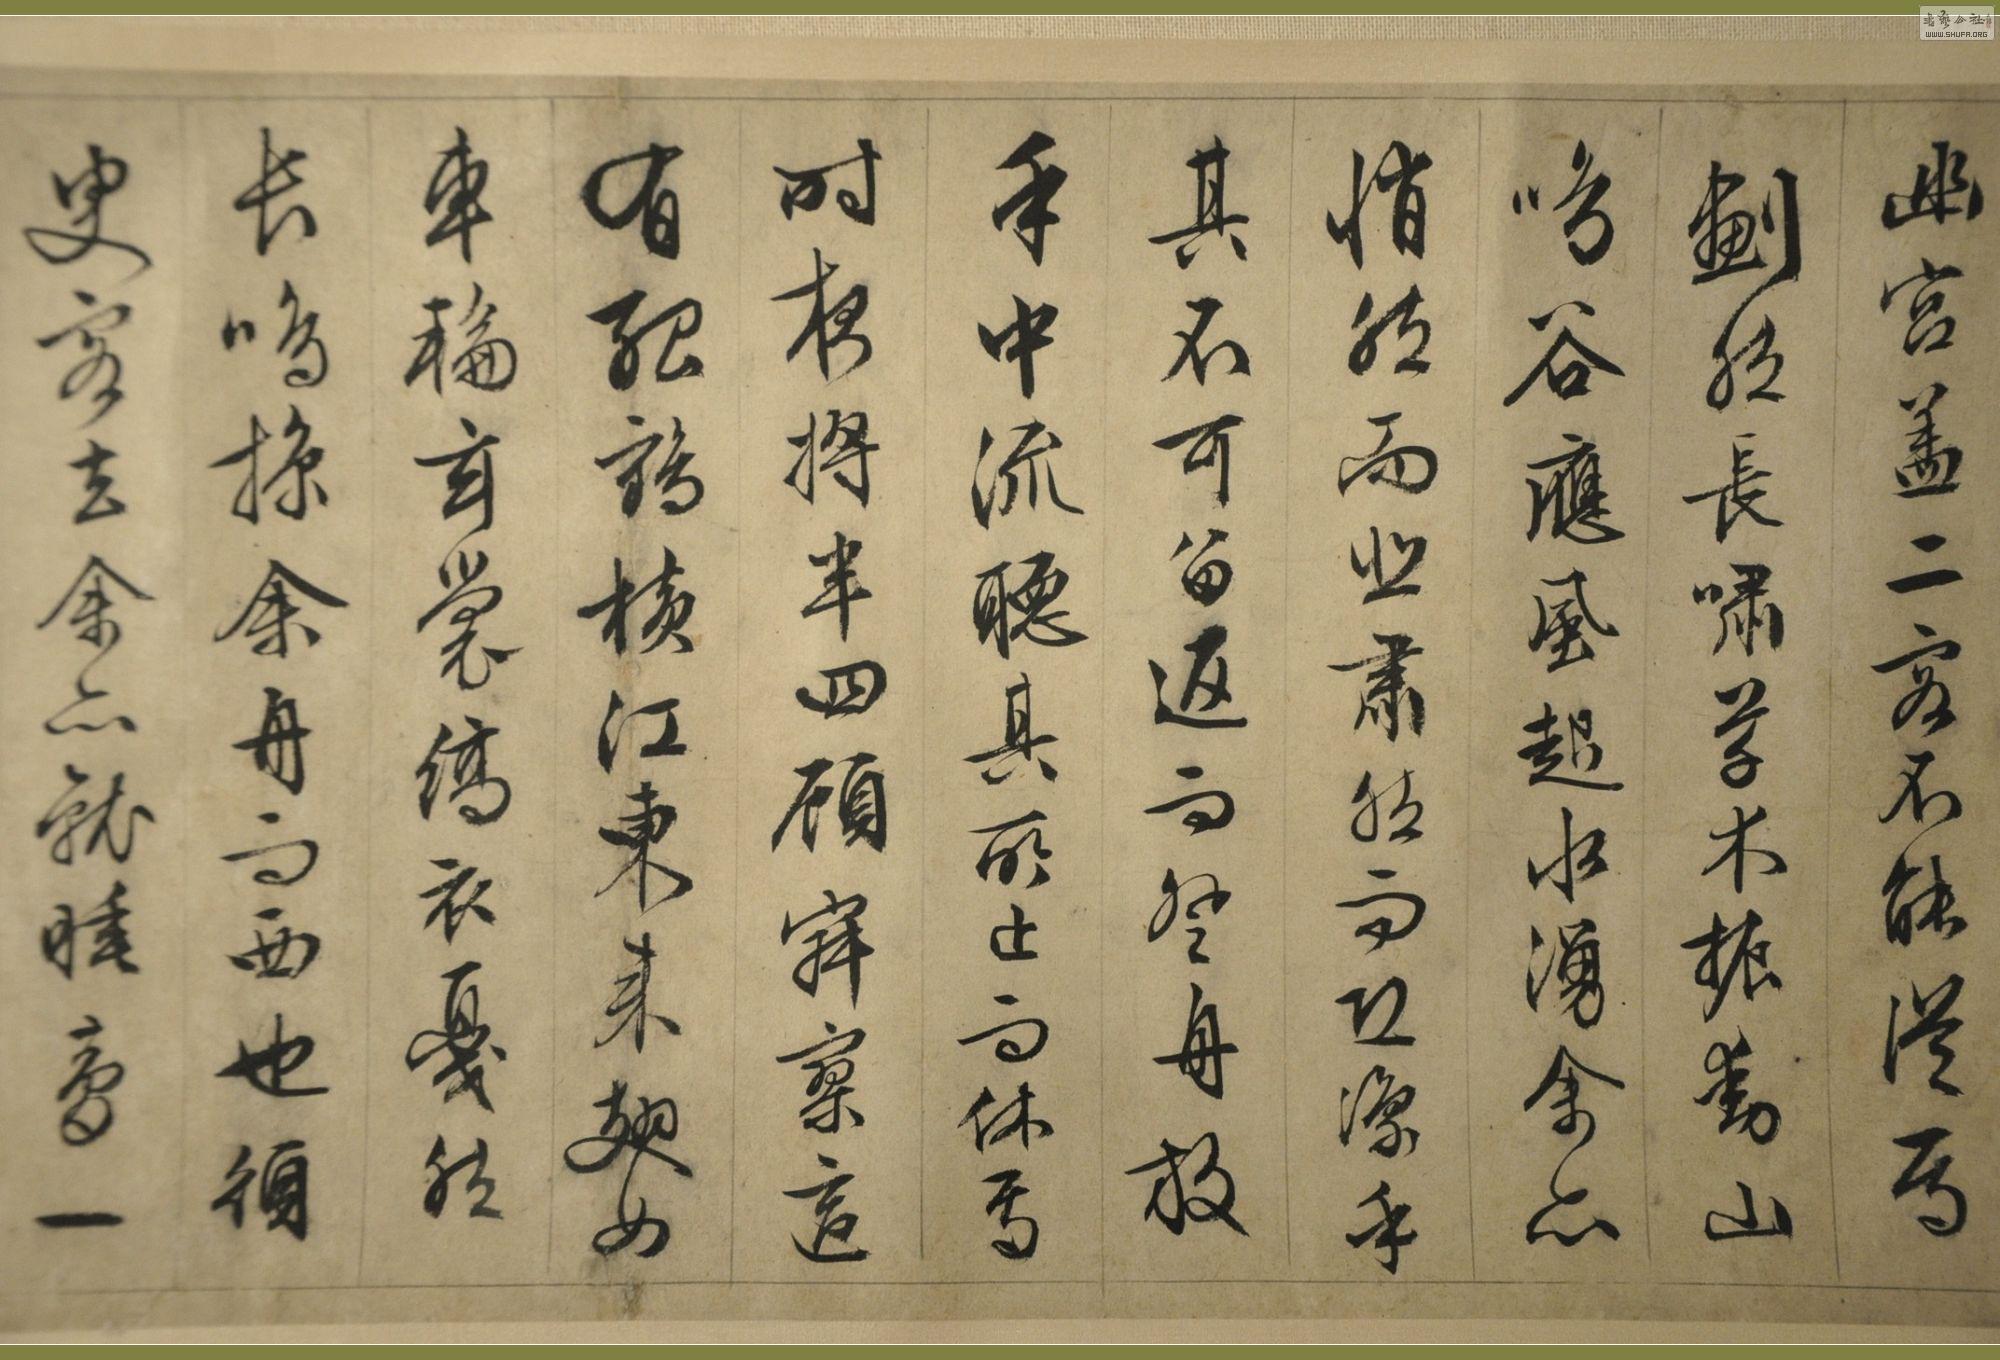 幽宮盖二客不能從焉
劃然長嘯草木振動山
鳴谷應風起水湧余亦
悄然而悲肅然而恐凛乎
其不可留返而登舟放
乎中流聽其所止而休焉
時夜將半四顧寂寥適
有孤鶴橫江東來翅如
車輪玄裳縞衣戛然
長鳴掠余舟而西也須
臾客去余亦就睡夢一
书艺公社
WWW.SHUFA.ORG